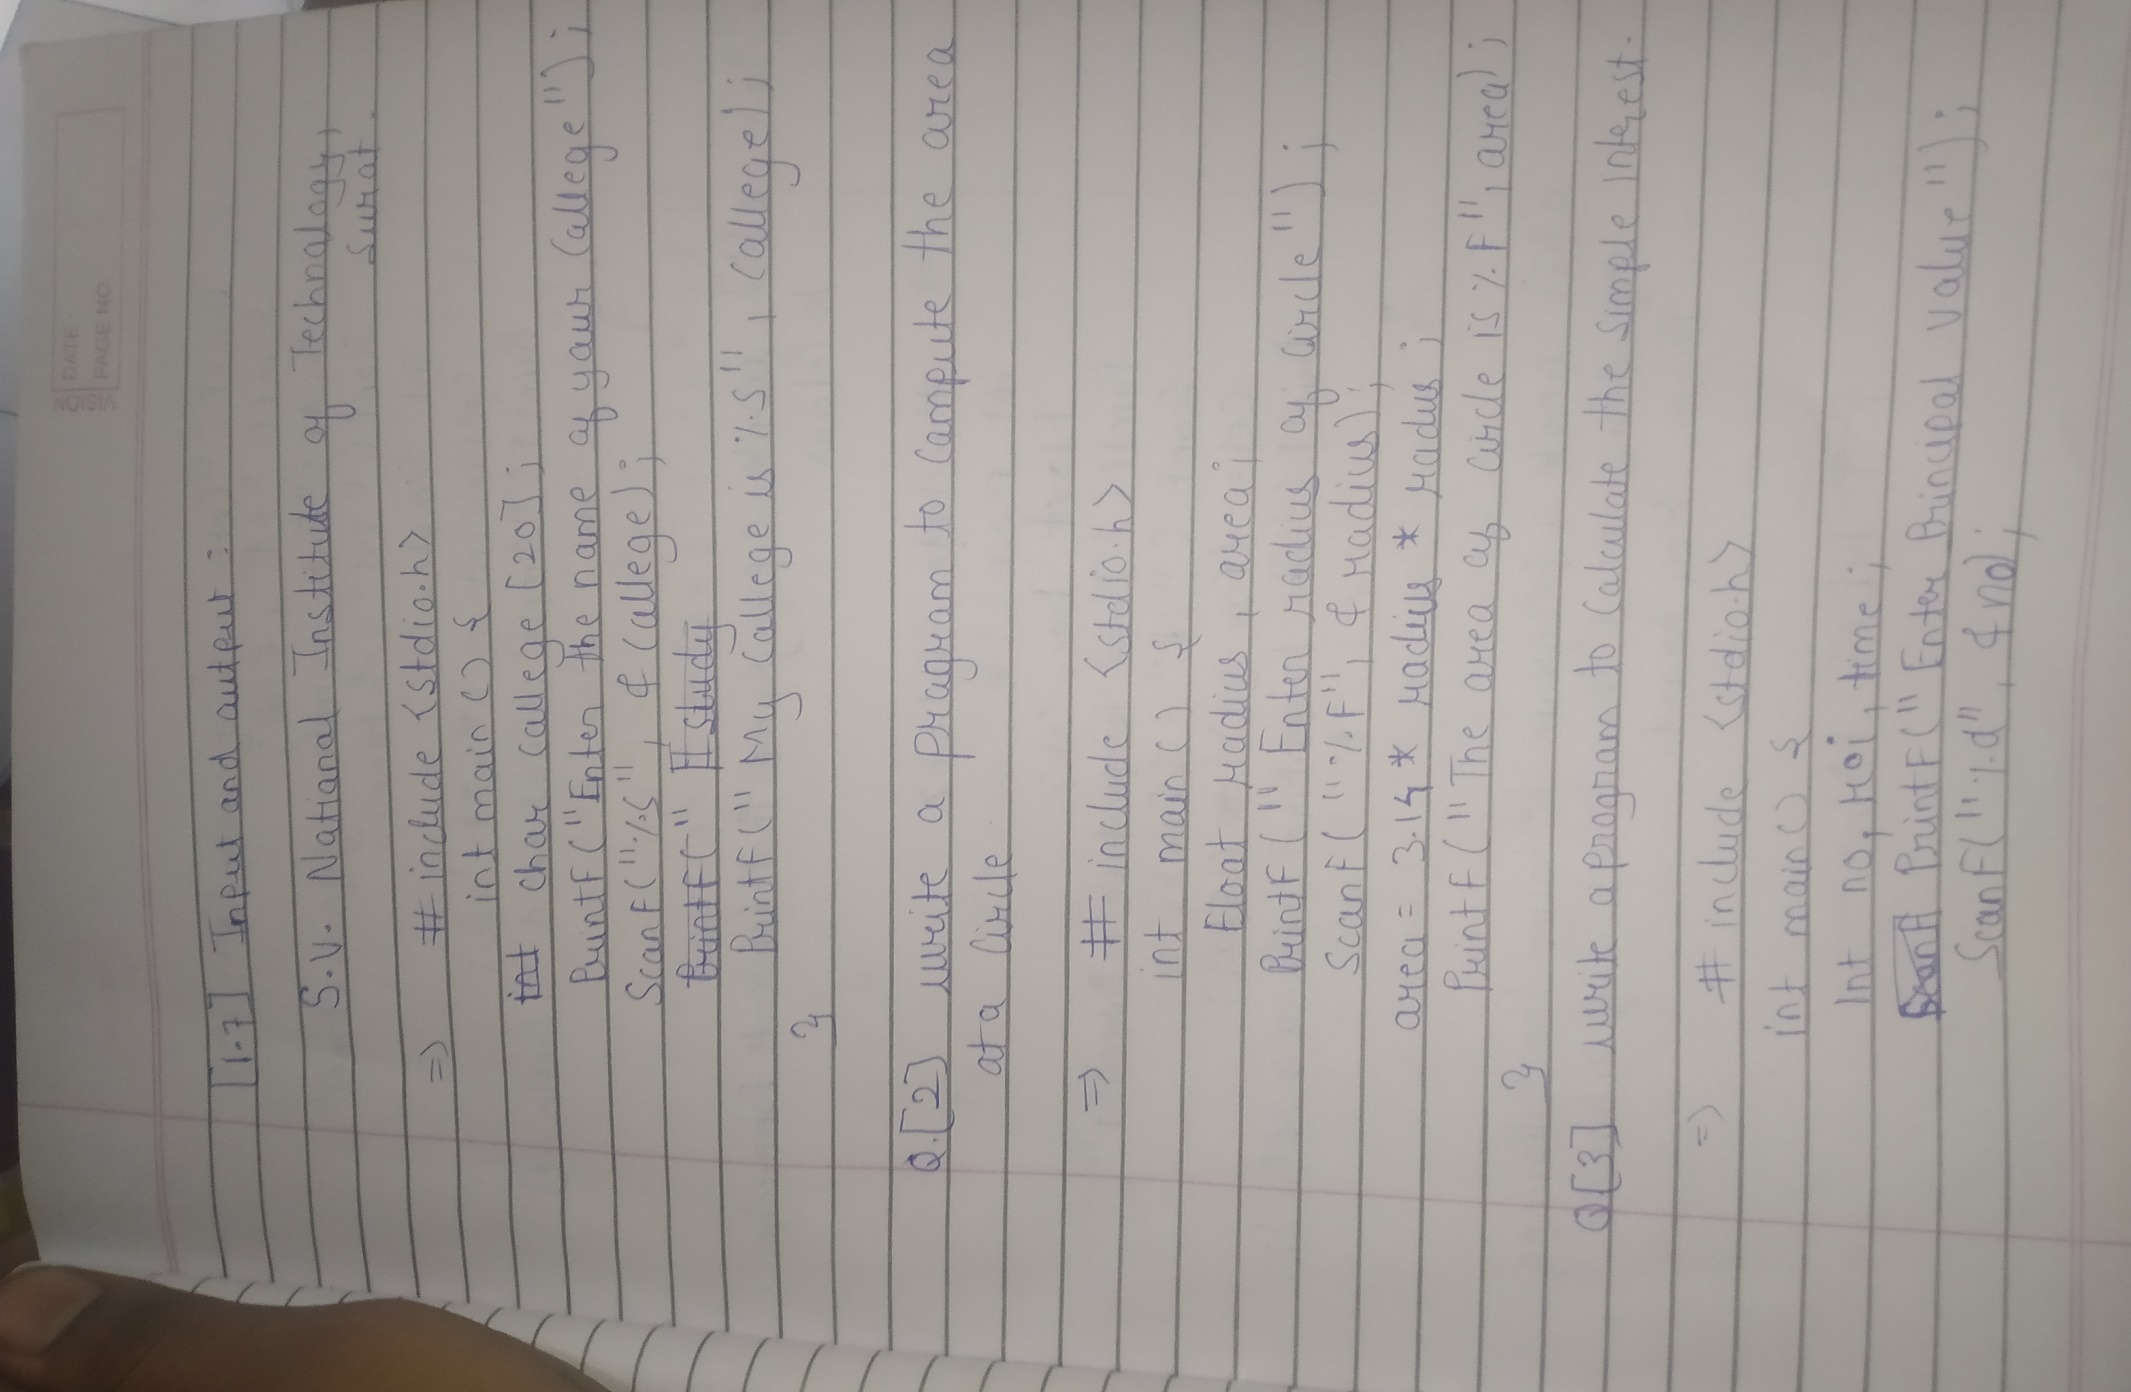 DATE :
PAGE NO
[1.7] Input and output :
S.V. National Institute of Technology,
Surat.
=> # include <stdio.h>
int main () {
int char college [20] ;
Printf ("Enter the name of your college") ;
Scanf ("%s" , & college) ;
Printf (" I study
Printf (" My college is %s" , college) ;
}
Q.[2] write a program to compute the area
of a circle
=> # include <stdio.h>
int main () {
Float radius , area ;
Printf (" Enter radius of circle ") ;
Scanf ( "%f" , & radius) ;
area = 3.14 * radius * radius ;
Printf ( " The area of circle is %f" , area) ;
}
Q[3] write a program to calculate the simple interest.
=> # include <stdio.h>
int main () {
Int no , roi , time ;
Scanf Printf (" Enter Principal value ") ;
Scanf ("%d" , & no) ;